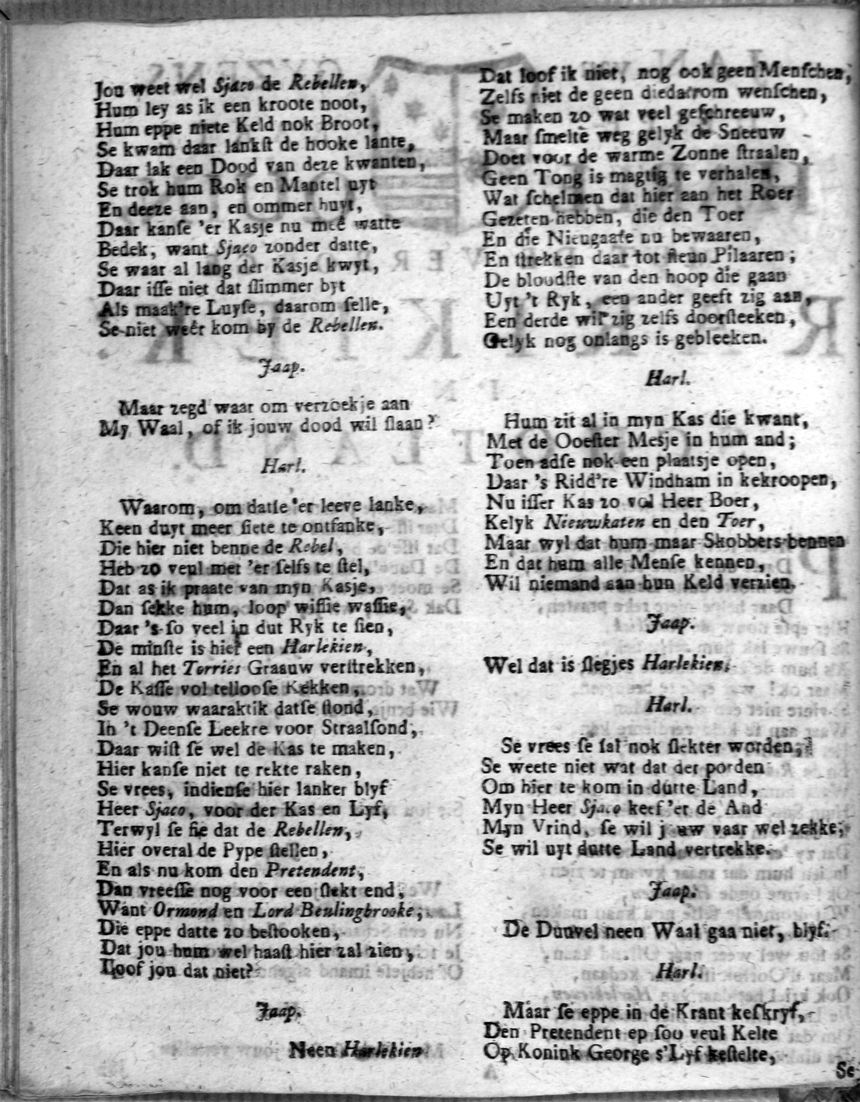 Jou weet wel Sjaco de Rebellen,
Hum ley as ik een kroote noot,
Hum eppe niete Keld nok Broot,
Se kwam daar lankſt de hooke lante,
Daar lak een Dood van deze kwanten,
Se trok hum Rok en Mantel uyt
En deeze aan, en ommer huyt,
Daar kanſe 'er Kasje nu meê watte
Bedek, want Sjaco zonder datte,
Se waar al lang der Kasje kwyt,
Daar iſſe niet dat ſlimmer byt
Als maak're Luyſe, daarom ſelle,
Se niet weêr kom by de Rebellen.
Jaap.
Maar zegd waar om verzoekje aan
My Waal, of ik jouw dood wil ſlaan?
Harl.
Waarom, om datſe 'er leeve lanke,
Keen duyt meer ſiete te ontfanke,
Die hier niet benne de Rebel,
Heb zo veul met 'er ſelfs te ſtel,
Dat as ik praate van myn Kasje,
Dan ſekke hum, loop wiſſie waſſie,
Daar 's ſo veel in dut Ryk te ſien,
De minſte is hier een Harlekien,
En al het Torries Graauw verſtrekken,
De Kaſſe vol tellooſe Kekken,
Se wouw waaraktik datſe ſtond,
In 't Deenſe Leekre voor Straalſond,
Daar wiſt ſe wel de Kas te maken,
Hier kanſe niet te rekte raken,
Se vrees, indienſe hier lanker blyf
Heer Sjaco, voor der Kas en Lyf,
Terwyl ſe ſie dat de Rebellen,
Hier overal de Pype ſtellen,
En als nu kom den Pretendent,
Dan vreeſſe nog voor een ſlekt end,
Want Ormond en Lord Beulingbrooke,
Die eppe datte zo beſtooken,
Dat jou hum wel haaſt hier zal zien,
Loof jou dat niet?
Jaap.
Neen Harlekien
Dat loof ik niet, nog ook geen Menſchen,
Zelfs niet de geen die daarom wenſchen,
Se maken zo wat veel geſchreeuw,
Maar ſmelte weg gelyk de Sneeuw
Doet voor de warme Zonne ſtraalen,
Geen Tong is magtig te verhalen,
Wat ſchelmen dat hier aan het Roer
Gezeten hebben, die den Toer
En die Nieugaate nu bewaaren,
En ſtrekken daar tot ſteun Pilaaren;
De bloodſte van den hoop die gaan
Uyt 't Ryk, een ander geeft zig aan,
Een derde wil zig zelfs doorſteeken,
Gelyk nog onlangs is gebleeken.
Harl.
Hum zit al in myn Kas die kwant,
Met de Ooeſter Mesje in hum and;
Toen adſe nok een plaatsje open,
Daar 's Ridd're Windham in kekroopen,
Nu iſſer Kas zo vol Heer Boer,
Kelyk Nieuwkaten en den Toer,
Maar wyl dat hum maar Skobbers bennen
En dat hum alle Menſe kennen,
Wil niemand aan hun Keld verzien.
Jaap.
Wel dat is ſlegjes Harlekien.
Harl.
Se vrees ſe ſal nok ſlekter worden,
Se weete niet wat dat der porden
Om hier te kom in dutte Land,
Myn Heer Sjaco keef 'er de And
Myn Vrind, ſe wil jouw vaar wel zekke,
Se wil uyt dutte Land vertrekke.
Jaap.
De Duuvel neen Waal gaa niet, blyf.
Harl.
Maar ſe eppe in de Krant keſkryf,
Den Pretendent ep ſoo veul Kelte
Op Konink George s'Lyf keſtelte,
Se